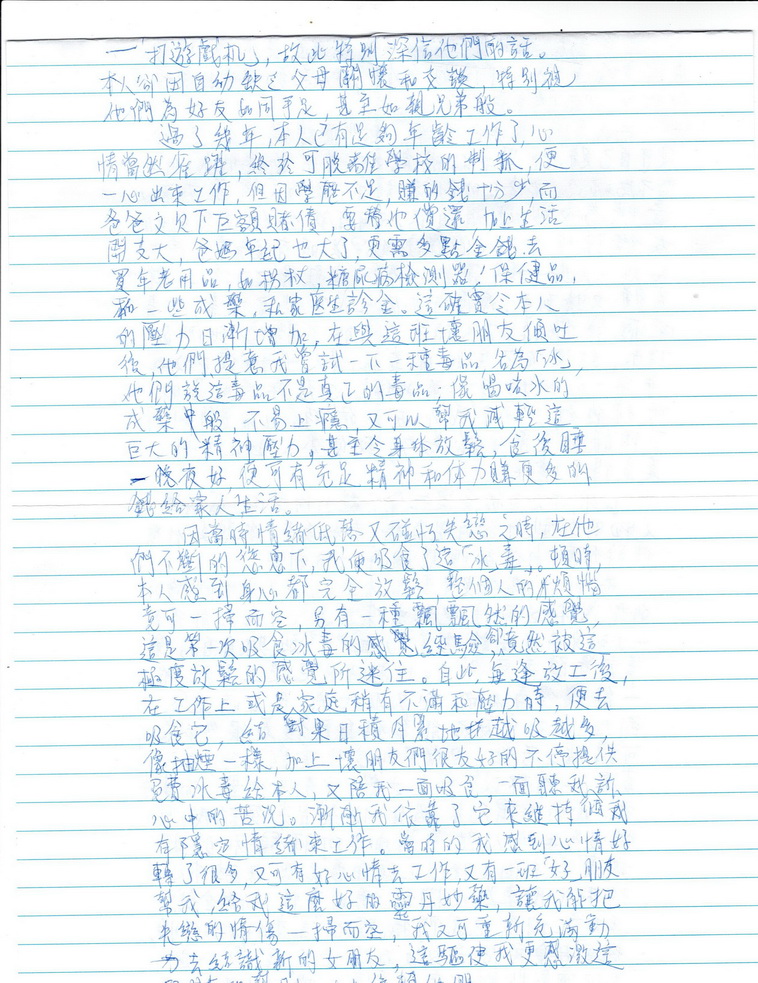 一「打遊戲机」，故此特別深信他們的話。
本人卻因自幼缺乏父母關懷和支援，特別視
他們為好友如同手足，甚至如親兄弟般。
過了幾年，本人已有足夠年齡工作了，心
情當然雀躍，終於可脫離學校的，便
一心出來工作，但因學歷不足，賺的錢十分少，而
爸爸又欠下巨額賭債，要替他償還，加上生活
開支大，爸媽年紀也大了，更需多點金錢去
買年老用品，如拐杖，糖尿病檢測器，保健品，
和一些成藥，私家醫生診金。這確實令本人
的壓力日漸增加，在與這班壞朋友傾吐
後，他們提意我嘗試一下一種毒品名為「冰」，
他們說這毒品不是真正的毒品，像傷風咳水的
成藥中般，不易上癮，又可以幫我減輕這
巨大的精神壓力，甚至令身体放鬆，食後睡
一晚夜好便可有充足精神和体力賺更多的
錢給家人生活。
因當時情緒低落又碰恆失戀之時，在他
們不斷的慫恿下，我便吸食了這「冰毒」。頓時，
本人感到身心都完全放鬆，整個人的煩惱
竟可一掃而空，另有一種飄飄然的感覺，
這是第一次吸食冰毒的感覺經驗卻竟然被這
極度放鬆的感覺所迷住。自此，每逢放工後，
在工作上或是家庭稍有不滿和壓力時，便去
吸食它，結果日積月累地越吸越多，
像抽煙一樣，加上壞朋友們很友好的不停提供
免費冰毒給本人，又陪我一面吸食，一面聽我訴
心中的苦況。漸漸我依靠了它來維持
有穩定情緒來工作。當時的我感到心情好
轉了很多，又可有好心情去工作，又有一班「好」朋友
幫我，給我這麼好的靈丹妙藥，讓我能把
失戀的情傷一掃而空，我又可重新充滿動
力去結識新的女朋友，這驅使我更感激這